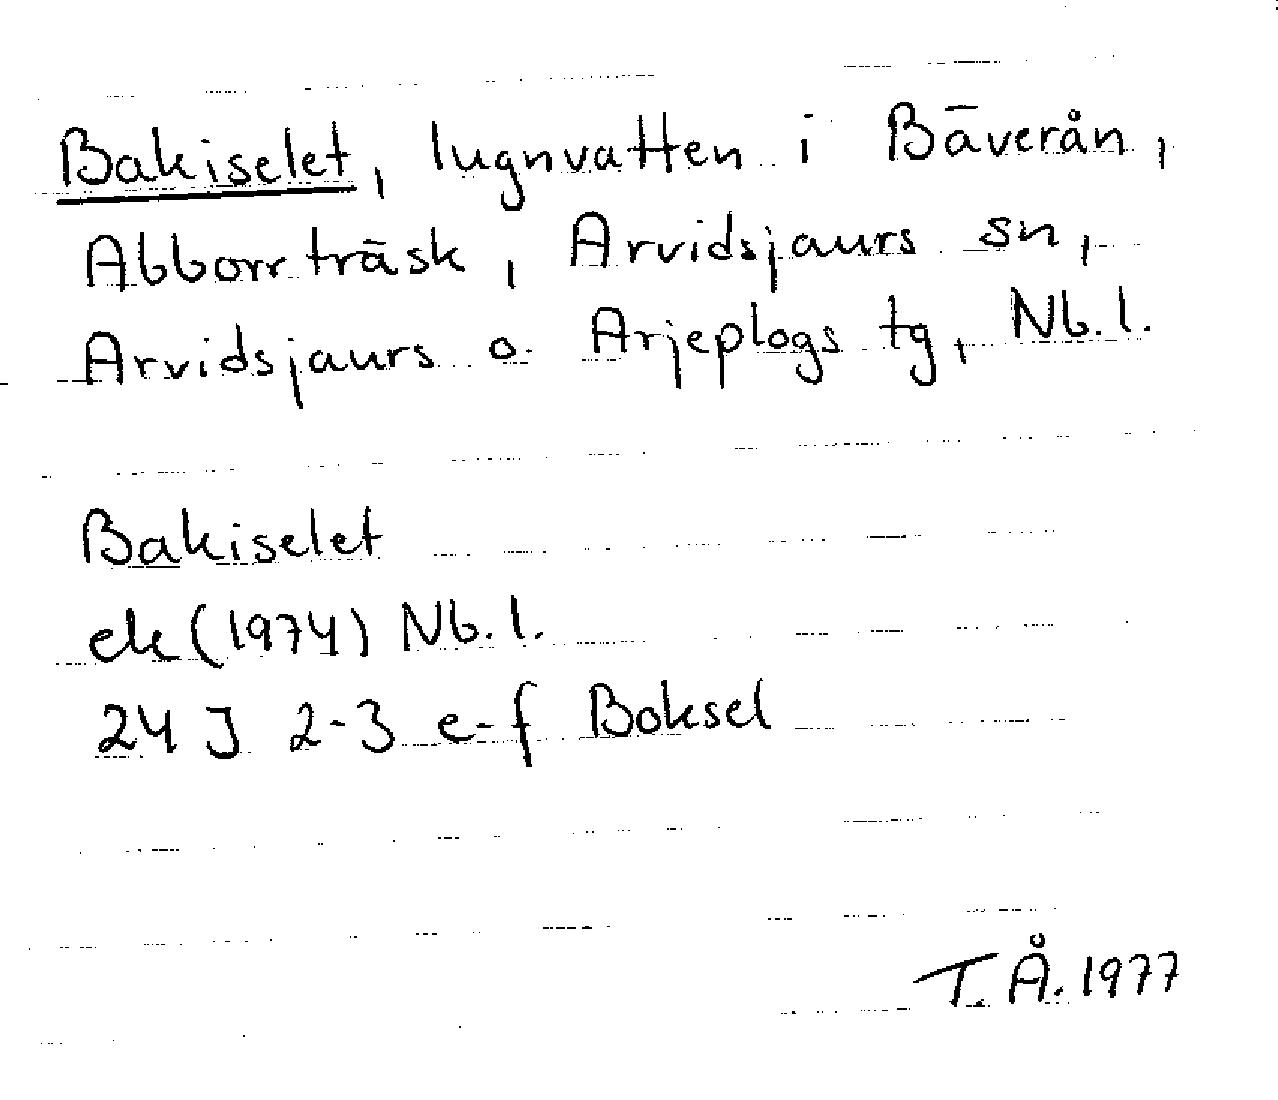 Bakiselet, lugnvatten i Bäverån,
Abborrträsk, Arvidsjaurs sn,
Arvidsjaurs o Arjeplogs tg, Nb. l.
Bakiselet
ek (1974) Nb. l.
24 J 2-3 e-f Boksel
T. Å. 1977